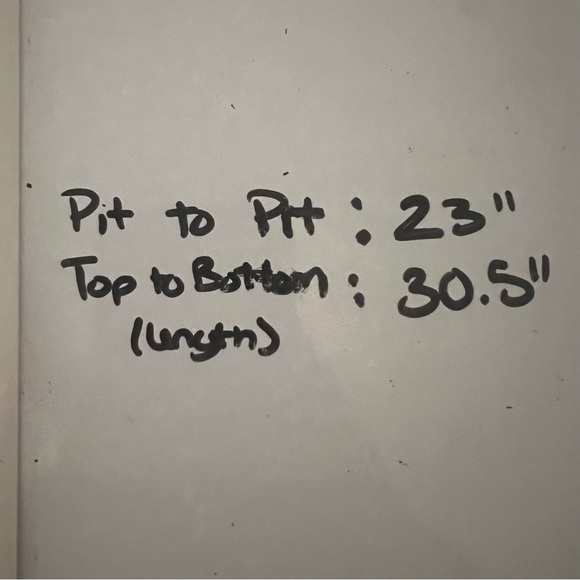 Pit to Pit : 23"
Top to Bottom : 30.5"
(length)